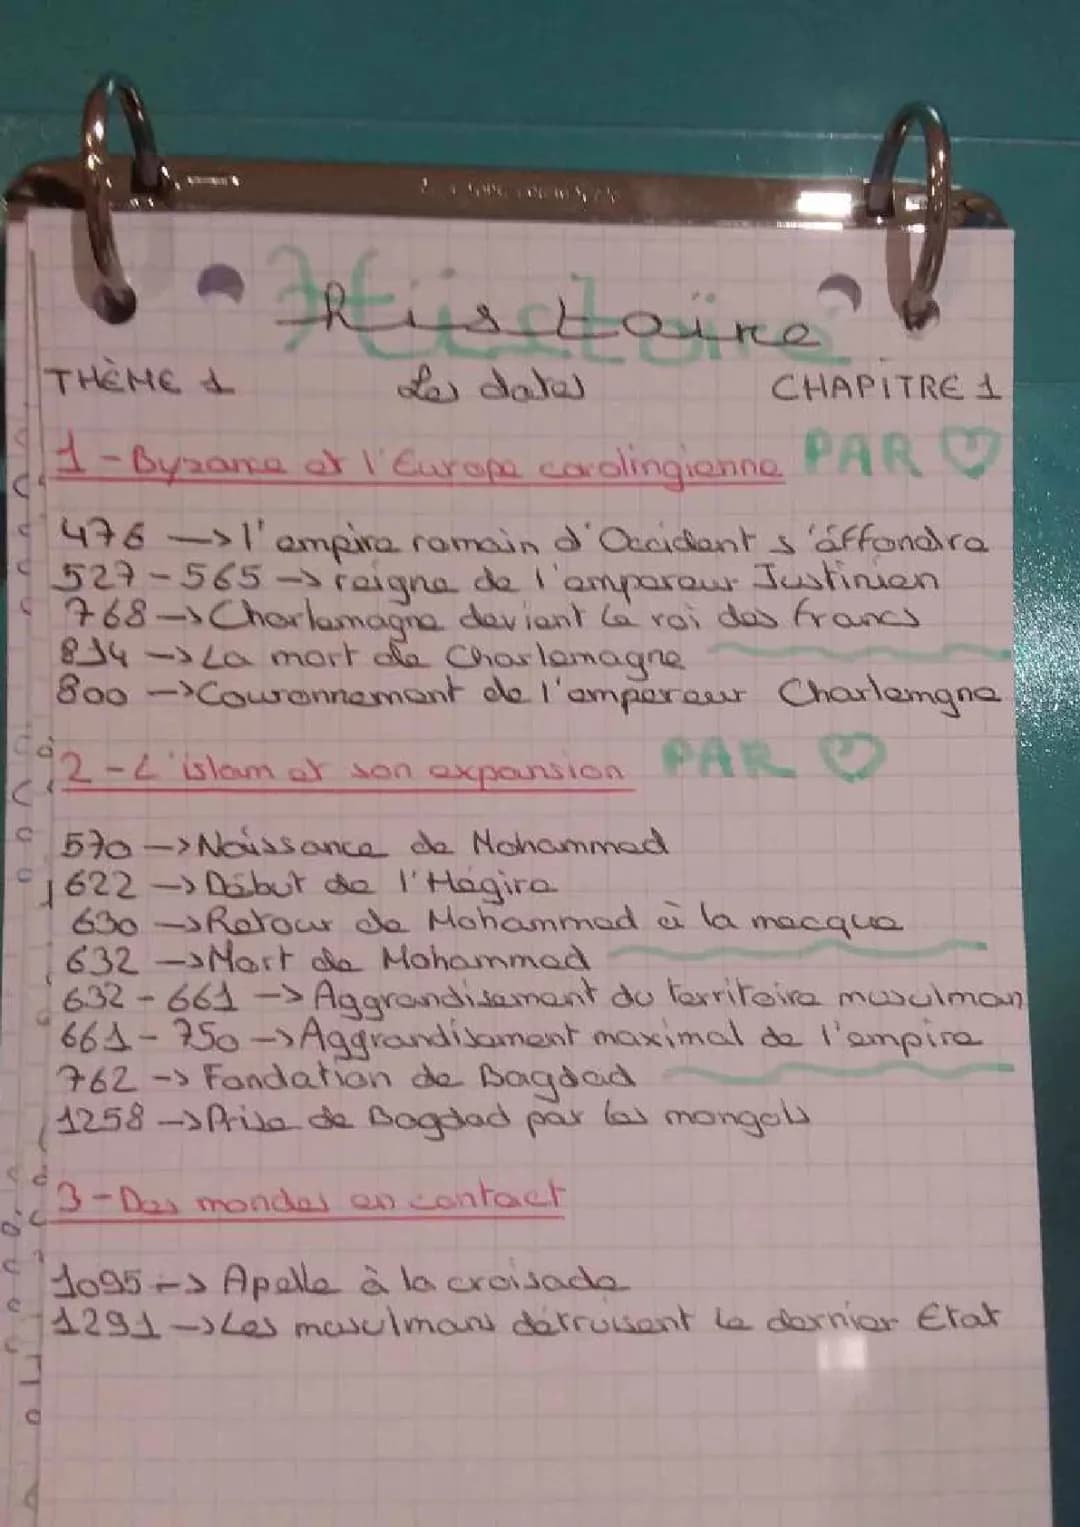 Histoire
THÈME 1 Les dates CHAPITRE 1
1-Byzance et l'Europe carolingienne PAR ♡
476 → l'empire romain d'Occident s'éffondre
527-565 → reigne de l'empereur Justinien
768 → Charlemagne devient le roi des francs
814 → La mort de Charlemagne
800 → Couronnement de l'empereur Charlemgne
2-L'islam et son expansion PAR ♡
570 → Naissance de Mohammed
622 → Début de l'Hégire
630 → Retour de Mohammed à la mecque
632 → Mort de Mohammed
632-661 → Aggrandisement du territoire musulman
661-750 → Aggrandisement maximal de l'empire
762 → Fondation de Bagdad
1258 → Prise de Bagdad par les mongols
3-Des mondes en contact
1095 → Apelle à la croisade
1291 → Les musulmans détruisent le dernier Etat